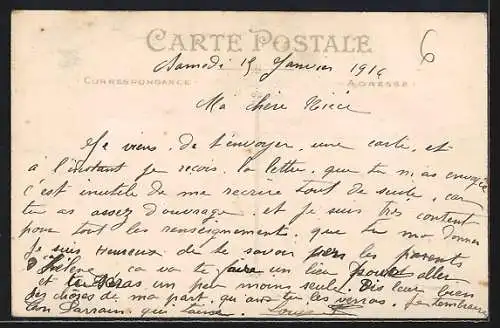 6
CARTE POSTALE
Samedi 15 Janvier 1916
CORRESPONDANCE ADRESSE
Ma chère Nièce
Je viens de t'envoyer une carte et
à l'instant je reçois la lettre que tu m'as envoyée
c'est inutile de me recrire tout de suite car
tu as assez d'ouvrage et je suis très content
pour tout les renseignements que tu me donnes
Je suis Heureux de te savoir près les parents
d'Hélène ça va te faire un lieu pour aller
et tu seras un peu moins seule. Dis leur bien
des choses de ma part, quand tu les verras. Je t'embrasse
Ton Parrain qui t'aime Louis